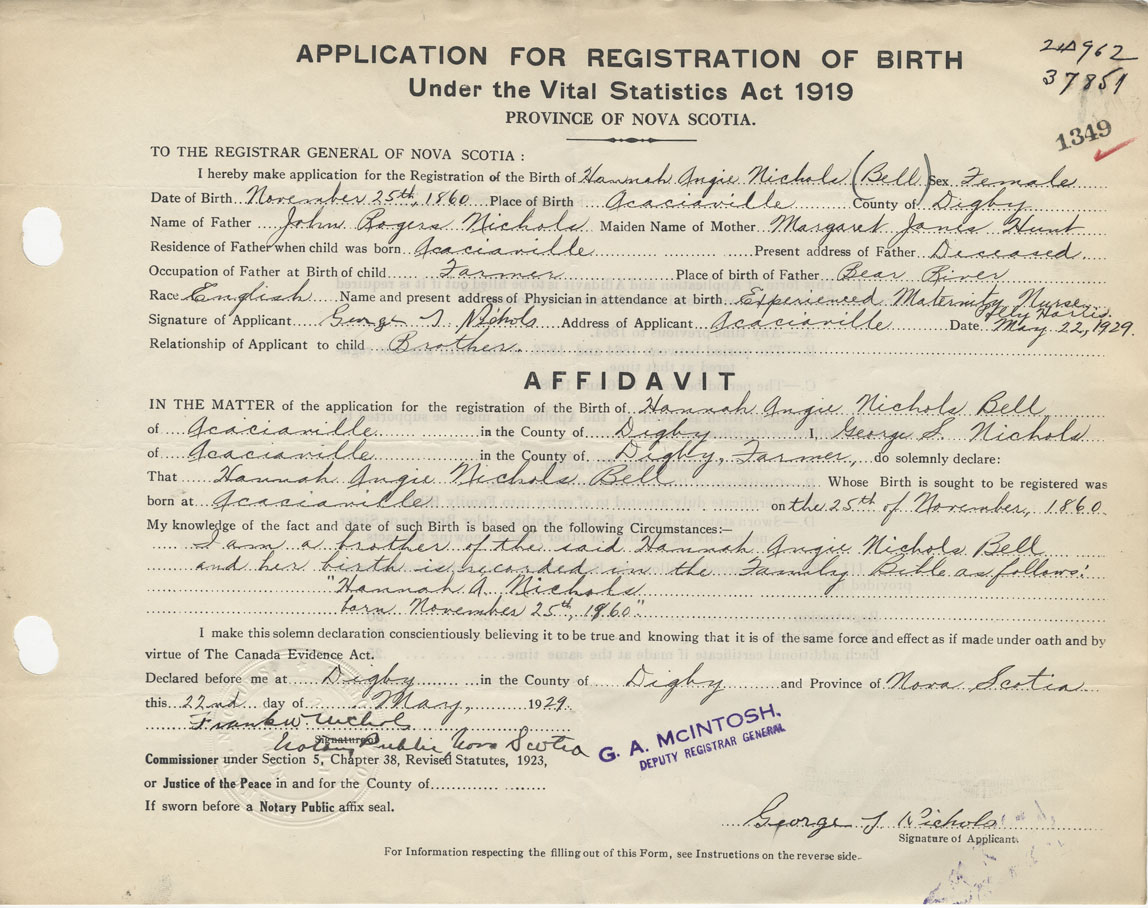 APPLICATION FOR REGISTRATION OF BIRTH
24962
Under the Vital Statistics Act 1919
37851
PROVINCE OF NOVA SCOTIA.
1349
TO THE REGISTRAR GENERAL OF NOVA SCOTIA :
I hereby make application for the Registration of the Birth of Hannah Angie Nichols (Bell) Sex Female
Date of Birth November 25th, 1860 Place of Birth Acaciaville County of Digby
Name of Father John Rogers Nichols Maiden Name of Mother Margaret Jones Hunt
Residence of Father when child was born Acaciaville Present address of Father Deceased
Occupation of Father at Birth of child Farmer Place of birth of Father Bear River
Race English Name and present address of Physician in attendance at birth Experienced Maternity Nurse
Signature of Applicant George Nichols Address of Applicant Acaciaville Date May 22, 1929.
Relationship of Applicant to child Brother.
AFFIDAVIT
IN THE MATTER of the application for the registration of the Birth of Hannah Angie Nichols Bell
of Acaciaville in the County of Digby I, George S. Nichols
of Acaciaville in the County of Digby, Farmer, do solemnly declare:
That Hannah Angie Nichols Bell Whose Birth is sought to be registered was
born at Acaciaville on the 25th of November, 1860
My knowledge of the fact and date of such Birth is based on the following Circumstances:—
I am a brother of the said Hannah Angie Nichols Bell
and her birth is recorded in the Family Bible as follows:
"Hannah A. Nichols
born November 25th, 1860"
I make this solemn declaration conscientiously believing it to be true and knowing that it is of the same force and effect as if made under oath and by
virtue of The Canada Evidence Act.
Declared before me at Digby in the County of Digby and Province of Nova Scotia
this 22nd day of May, 1929.
Frank W Nichols
Signature of
Notary Public, Nova Scotia
G. A. McINTOSH.
DEPUTY REGISTRAR GENERAL
Commissioner under Section 5, Chapter 38, Revised Statutes, 1923,
or Justice of the Peace in and for the County of
If sworn before a Notary Public affix seal.
George Nichols
Signature of Applicant.
For Information respecting the filling out of this Form, see Instructions on the reverse side.